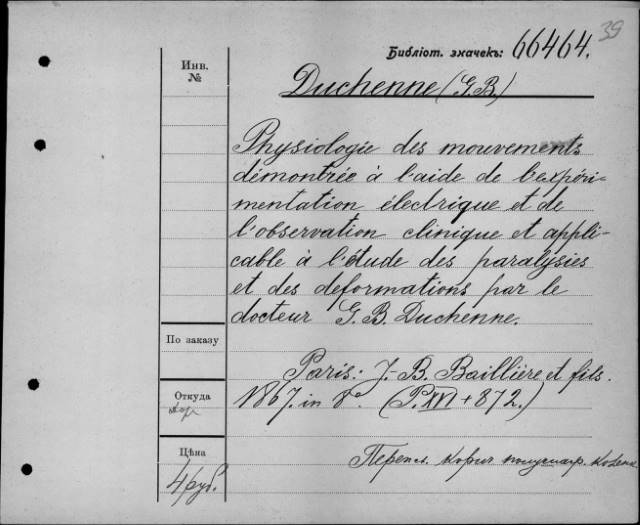 39
Библіот. значекъ: 66464.
Инв.
№
Duchenne (G. B.)
Physiologie des mouvements
démontrée à l'aide de l'expéri-
mentation électrique et de
l'observation clinique et appli-
cable à l'étude des paralysies
et des deformations par le
docteur G. B. Duchenne.
По заказу
Paris: J.-B. Baillière et fils.
Откуда
1867. in 8° (P. XVI + 872.)
Цѣна
4 руб.
Перепл. корич.